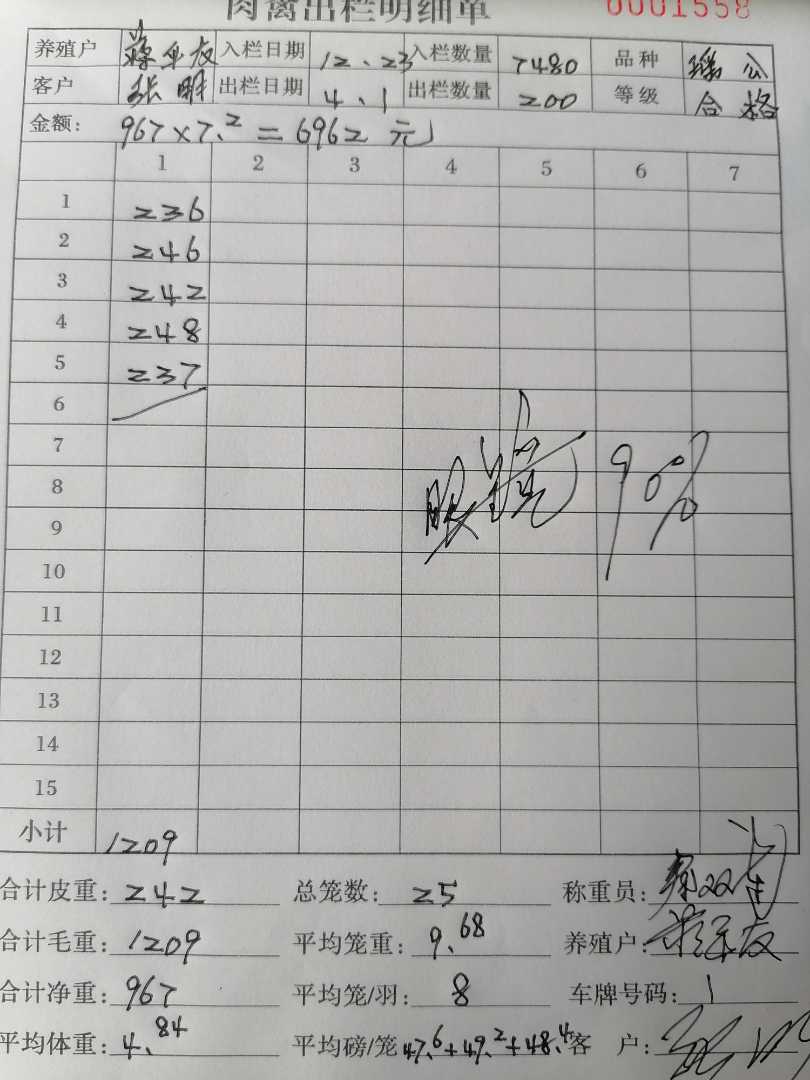 肉禽出栏明细单 0001558
养殖户 入栏日期 12.23 入栏数量 7480 品种 瑶公
客户 张明 出栏日期 4.1 出栏数量 200 等级 合格
金额: 967×7.2=6962元
1 2 3 4 5 6 7
1 236
2 246
3 242
4 248
5 237
6
7
8 眼镜 90%
9
10
11
12
13
14
15
小计 1209
合计皮重: 242 总笼数: 25 称重员:
合计毛重: 1209 平均笼重: 9.68 养殖户:
合计净重: 967 平均笼/羽: 8 车牌号码: 1
平均体重: 4.84 平均磅/笼 47.6+49.2+48.4 客 户: